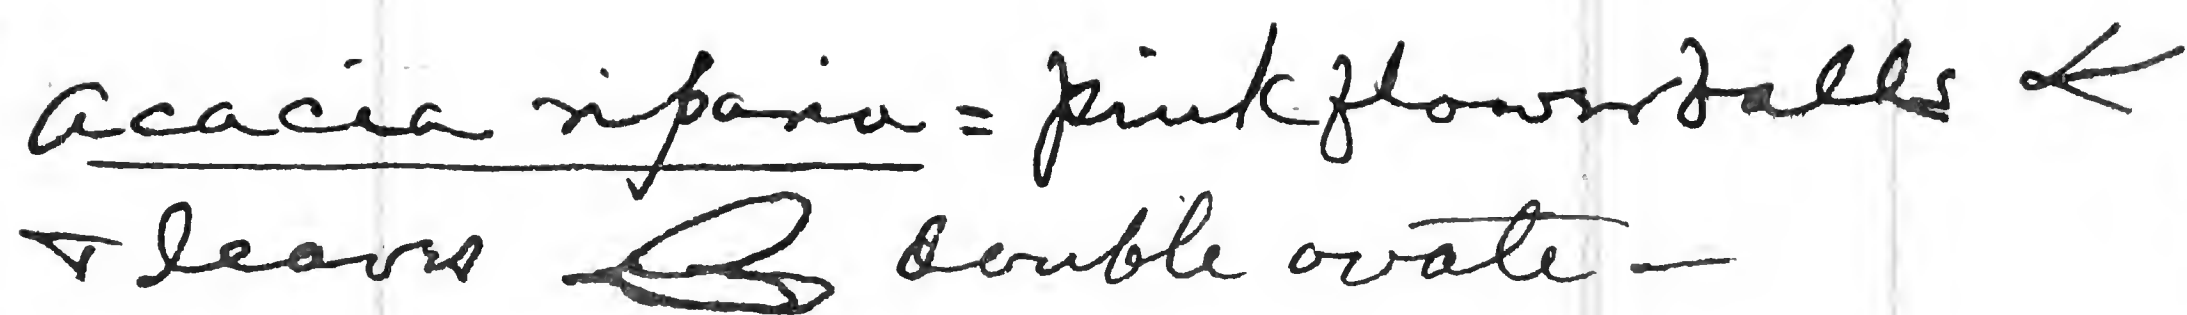 Acacia riparia = pink flower balls <
+ leaves double ovate —